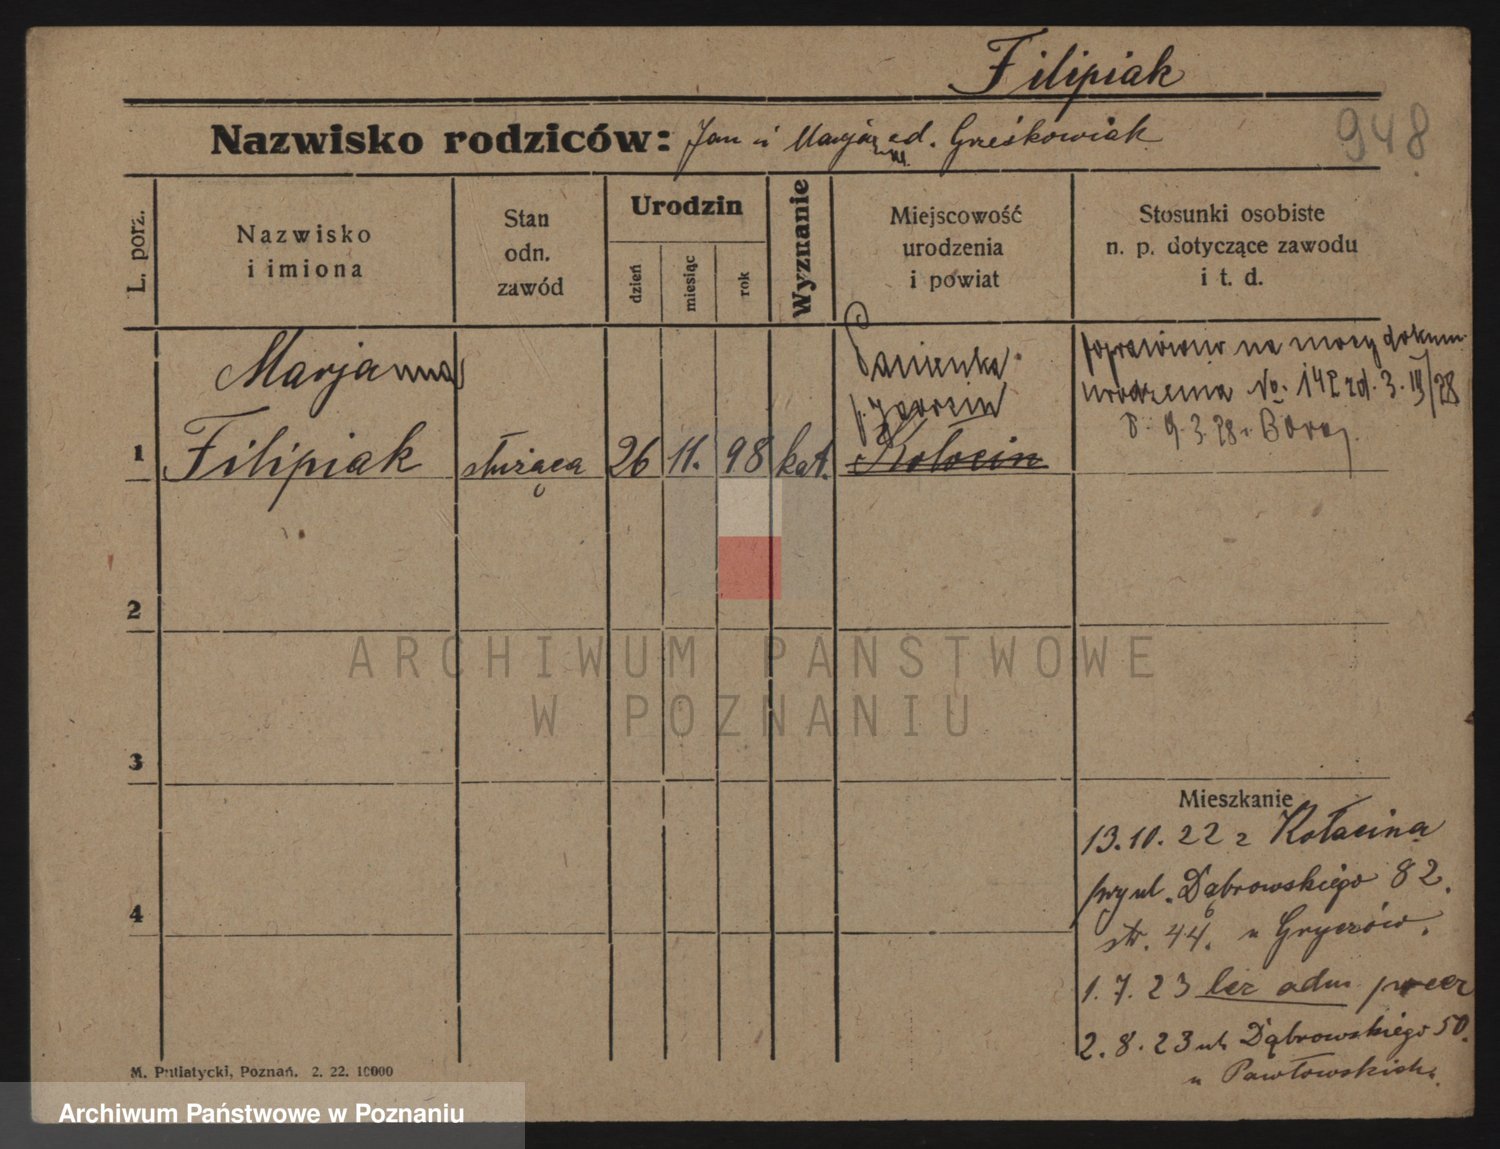 Filipiak
Nazwisko rodziców: Jan i Marja z d. Grześkowiak
948
L. porz.
Nazwisko
i imiona
Stan
odn.
zawód
Urodzin
dzień
miesiąc
rok
Wyznanie
Miejscowość
urodzenia
i powiat
Stosunki osobiste
n. p. dotyczące zawodu
i t. d.
1
Marjanna
Filipiak
służąca
26
11.
98
kat.
p. Jarocin
Kotocin
poprawiono na mocy dokum.
urodzenia No. 142 zd. 3. III/28
9. 3. 28.
2
3
4
Mieszkanie
13. 10. 22 z Kołacina
przy ul. Dąbrowskiego 82.
str. 44. u Gryczów.
1. 7. 23 bez adm
2. 8. 23 ul. Dąbrowskiego 50.
u Pawłowskich.
M. Putiatycki, Poznań. 2. 22. 10000
ARCHIWUM PAŃSTWOWE
W POZNANIU
Archiwum Państwowe w Poznaniu